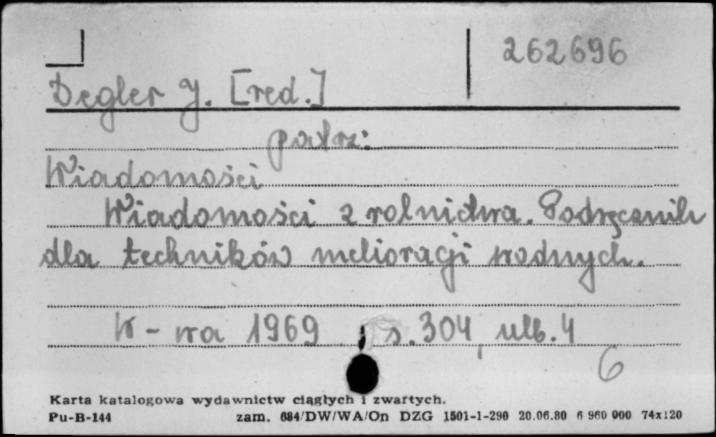 262696
Degler J. [red.]
patrz:
Wiadomości
Wiadomości z rolnictwa. Podręcznik
dla techników melioracji wodnych.
W-wa 1969, s. 304, ulb. 4
6
Karta katalogowa wydawnictw ciągłych i zwartych.
Pu-B-144 zam. 684/DW/WA/On DZG 1501-1-290 20.06.80 6 960 000 74x120